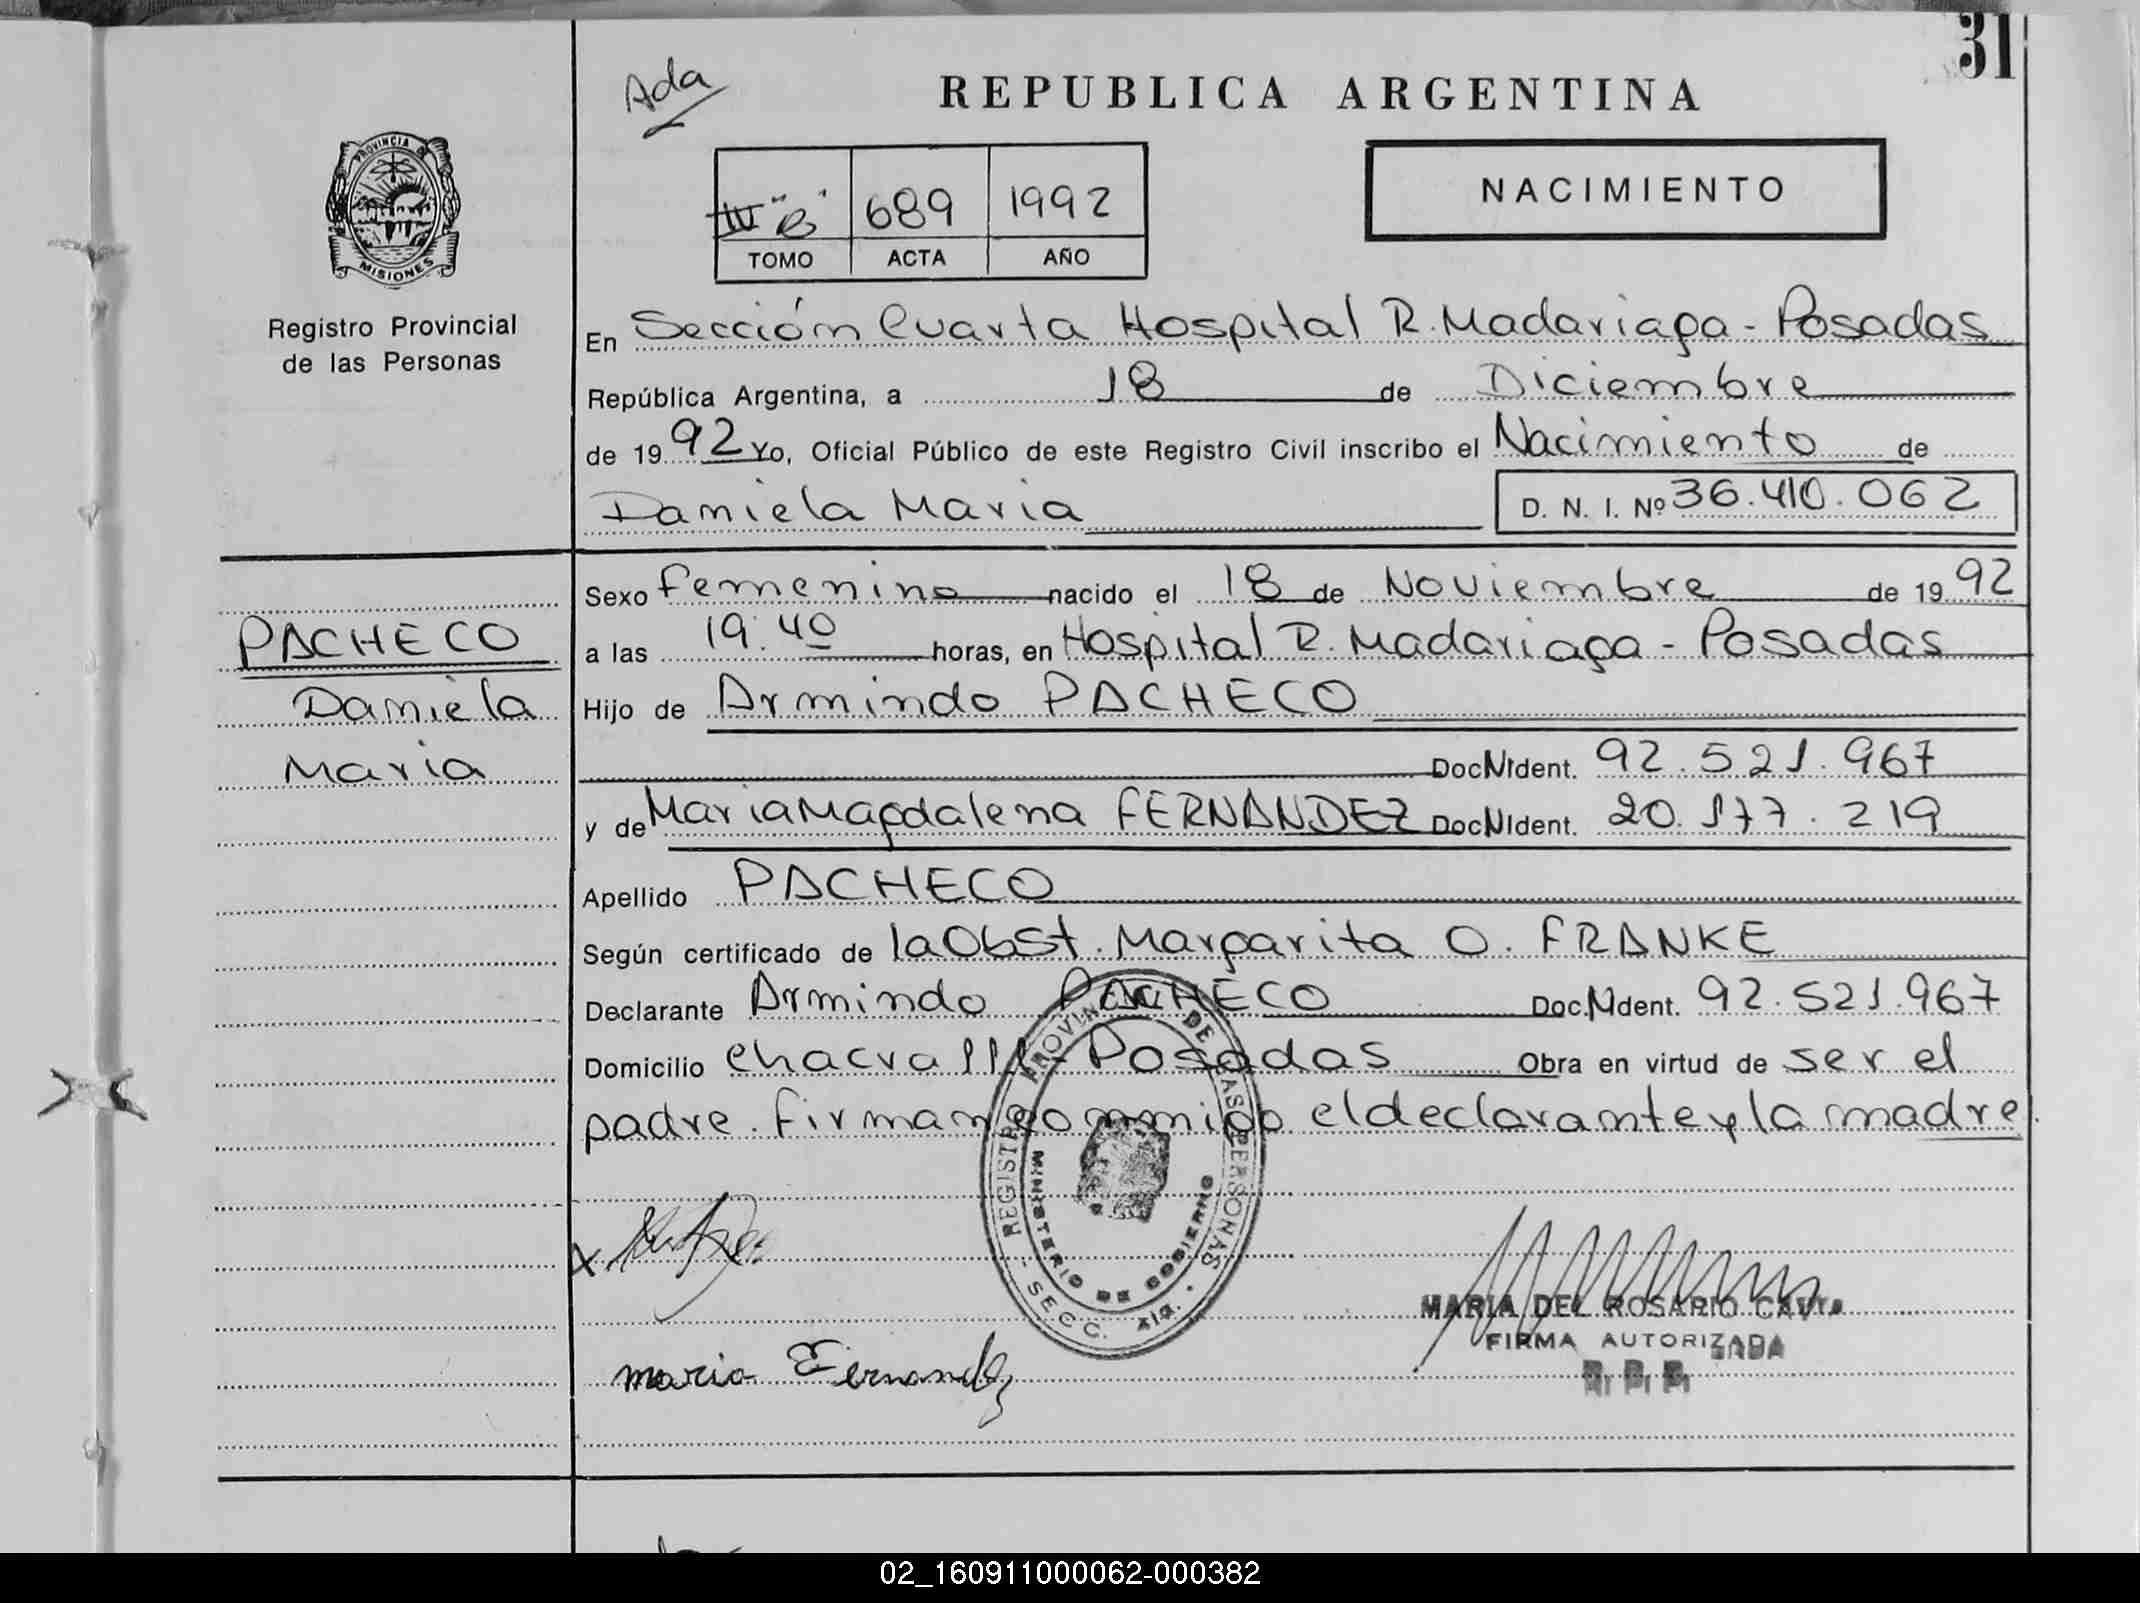 31
Ada
REPUBLICA ARGENTINA
PROVINCIA DE
MISIONES
Registro Provincial
de las Personas
"B" 689 1992
TOMO ACTA AÑO
NACIMIENTO
En Sección Cuarta Hospital R. Madariaga - Posadas
República Argentina, a 18 de Diciembre
de 1992 Yo, Oficial Público de este Registro Civil inscribo el Nacimiento de
Daniela Maria D. N. I. Nº 36.410.062
PACHECO
Daniela
Maria
Sexo femenino nacido el 18 de Noviembre de 1992
a las 19:40 horas, en Hospital R. Madariaga - Posadas
Hijo de Armindo PACHECO
Doc N Ident. 92.521.967
y de Maria Magdalena FERNANDEZ Doc N Ident. 20.177.219
Apellido PACHECO
Según certificado de la Obst. Margarita O. FRANKE
Declarante Armindo PACHECO Doc. N Ident. 92.521.967
Domicilio chacra 111 - Posadas Obra en virtud de ser el
padre. firman conmigo el declarante y la madre.
REGISTRO PROVINCIAL DE LAS PERSONAS
MINISTERIO DE GOBIERNO
SECC. 4ta.
X
maria Fernandez
MARIA DEL ROSARIO
FIRMA AUTORIZADA
R. P. P.
02_160911000062-000382